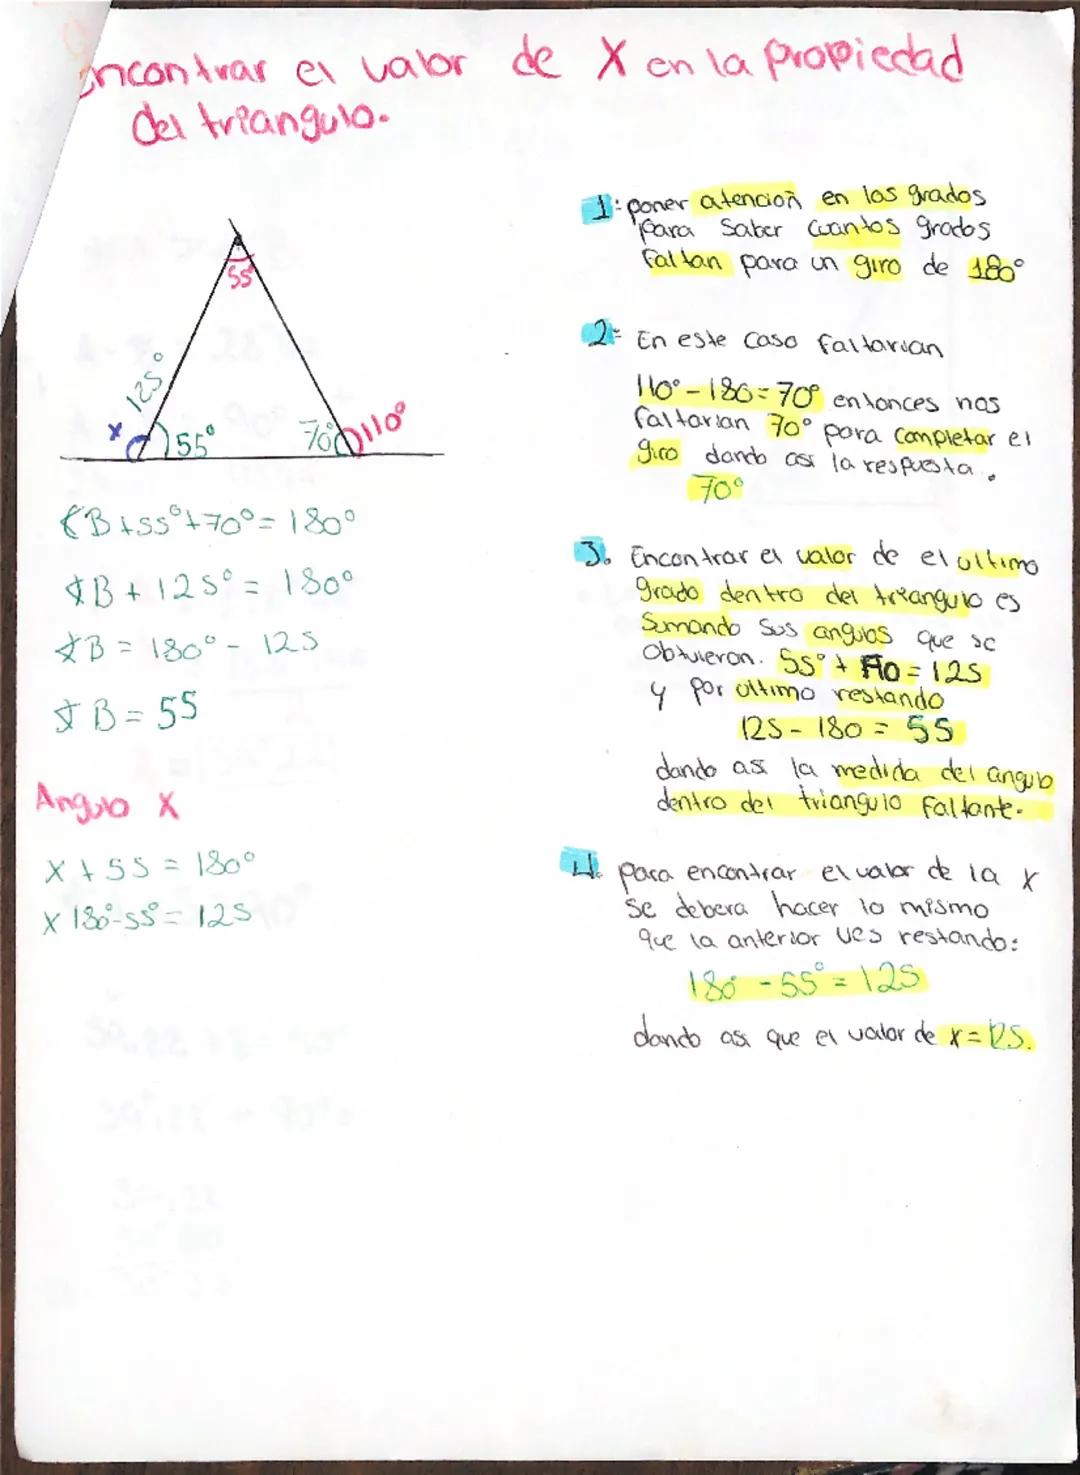 Encontrar el valor de X en la propiedad
del triangulo.
55°
125°
x
55°
70°
110°
∡B+55°+70°= 180°
∡B + 125° = 180°
∡B = 180° - 125
∡B = 55
Angulo X
X + 55 = 180°
X 180°-55° = 125
1: poner atencion en los grados
para saber cuantos grados
faltan para un giro de 180°
2: En este caso faltarian
110° - 180 = 70° entonces nos
faltarian 70° para completar el
giro dando asi la respuesta.
70°
3. Encontrar el valor de el ultimo
grado dentro del triangulo es
sumando sus angulos que se
obtuieron. 55° + 70 = 125
y por ultimo restando
125 - 180 = 55
dando asi la medida del angulo
dentro del triangulo faltante.
4. para encontrar el valor de la x
se debera hacer lo mismo
que la anterior ves restando:
180° - 55° = 125
dando asi que el valor de x = 125.